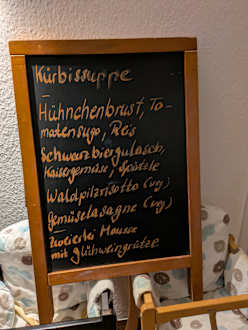 Kürbissuppe
–
Hühnchenbrust, To-
matensugo, Reis
Schwarzbiergulasch,
Kaisergemüse, Spätzle
Waldpilzrisotto (veg)
Gemüselasagne (veg)
–
Zweierlei Mousse
mit Glühweingrütze